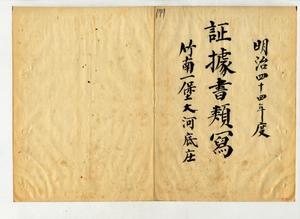 明治四十四年度
証據書類寫
竹南一堡大河底庄